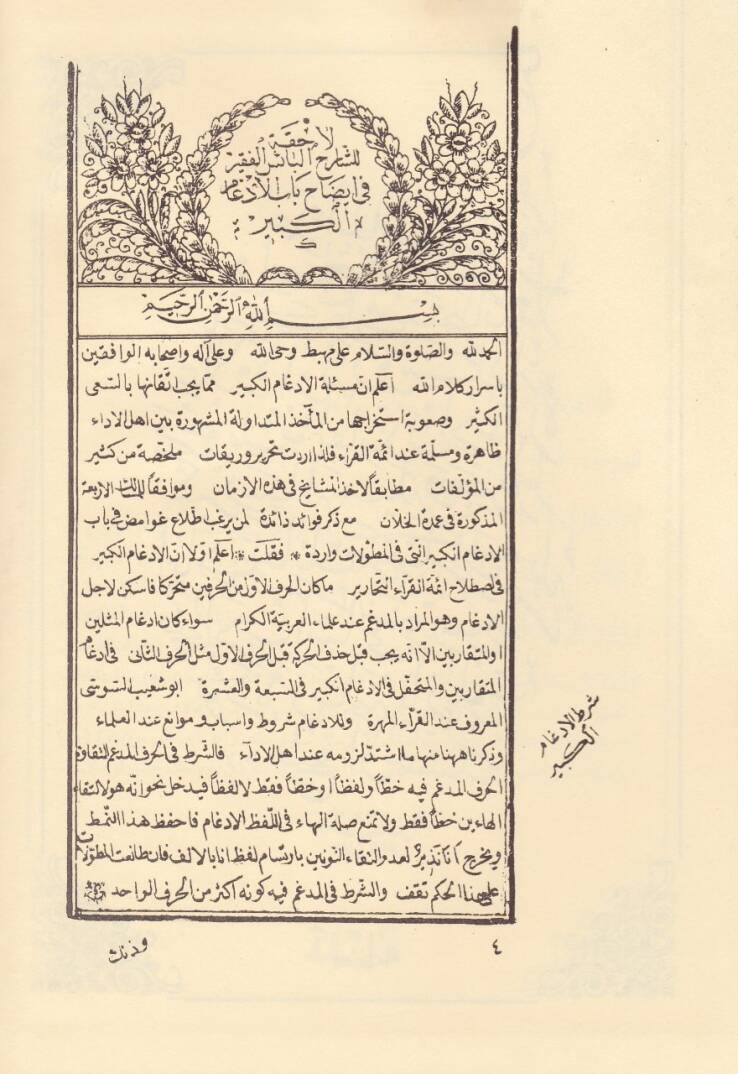 لاحقة
للشارح البائس الفقير
فى ايضاح باب الادغام
الكبير
بسم الله الرحمن الرحيم
الحمد لله والصلوة والسلام على مهبط وحى الله وعلى آله واصحابه الواقفين
باسرار كلام الله اعلم ان مسئلة الادغام الكبير مما يجب اتقانها بالسعى
الكثير وصعوبة استخراجها من المآخذ المتداولة المشهورة بين اهل الاداء
ظاهرة ومسلمة عند ائمة القراء فلذا اردت تحرير وريقات ملخصة من كثير
من المؤلفات مطابقاً لاخذ المشايخ فى هذه الازمان وموافقاً للمسالك الاربعة
المذكورة فى عمدة الخلان مع ذكر فوائد زائدة لمن يرغب اطلاع غوامض فى باب
الادغام الكبير التى فى المطولات واردة * فقلت * اعلم اولا ان الادغام الكبير
فى اصطلاح ائمة القراء النحارير ما كان الحرف الاول من الحرفين متحركا فاسكن لاجل
الادغام وهو المراد بالمدغم عند علماء العربية الكرام سواء كان ادغام المثلين
او المتقاربين الا انه يجب قبل حذف الحركة قبل الحرف الاول مثل الحرف الثانى فى ادغام
المتقاربين والمتحفل فى الادغام الكبير فى السبعة والعشرة ابو شعيب السوسى
المعروف عند القراء المهرة وللادغام شروط واسباب وموانع عند العلماء
وذكرنا ههنا منها ما اشتد لزومه عند اهل الاداء فالشرط فى الحرف المدغم التقاؤه
الحرف المدغم فيه خطاً ولفظاً او خطاً فقط لا لفظاً فيدخل نحو انه هو لالتقاء
الهاءين خطاً فقط ولا تمنع صلة الهاء فى اللفظ الادغام فاحفظ هذا النمط
ويخرج انا نذير لعدم التقاء النونين بارتسام لفظ انا بالالف فان طالعت المطولات
على هذا الحكم تقف والشرط فى المدغم فيه كونه اكثر من الحرف الواحد
شرط الادغام
الكبير
٤
وذلك